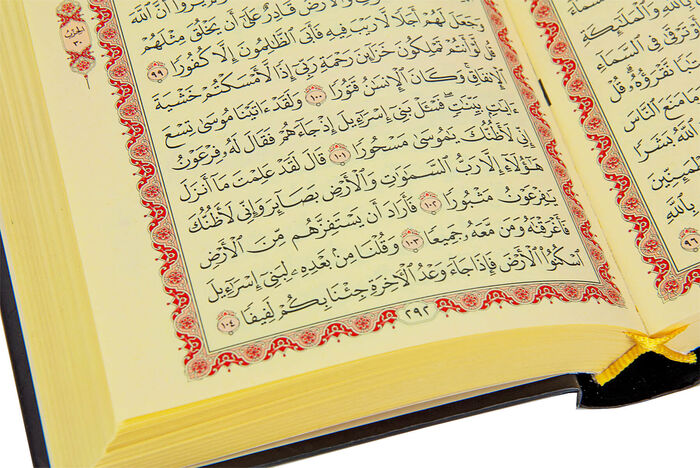 بِٱللَّهِ وَٱلْمَلَٰٓئِكَةِ
تَرْقَىٰ فِى ٱلسَّمَآءِ
نَّقْرَؤُهُۥ ۗ قُلْ
وَمَا مَنَعَ ٱلنَّاسَ
ٱللَّهُ بَشَرًا
بِٱللَّهِ
٩٦
يَرَوْا۟ أَنَّ ٱللَّهَ
وَٱلْأَرْضَ قَادِرٌ عَلَىٰٓ أَن يَخْلُقَ مِثْلَهُمْ
وَجَعَلَ لَهُمْ أَجَلًا لَّا رَيْبَ فِيهِ فَأَبَى ٱلظَّٰلِمُونَ إِلَّا كُفُورًا ٩٩
قُل لَّوْ أَنتُمْ تَمْلِكُونَ خَزَآئِنَ رَحْمَةِ رَبِّىٓ إِذًا لَّأَمْسَكْتُمْ خَشْيَةَ
ٱلْإِنفَاقِ ۚ وَكَانَ ٱلْإِنسَٰنُ قَتُورًا ١٠٠ وَلَقَدْ ءَاتَيْنَا مُوسَىٰ تِسْعَ
ءَايَٰتٍۭ بَيِّنَٰتٍ ۖ فَسْـَٔلْ بَنِىٓ إِسْرَٰٓءِيلَ إِذْ جَآءَهُمْ فَقَالَ لَهُۥ فِرْعَوْنُ
إِنِّى لَأَظُنُّكَ يَٰمُوسَىٰ مَسْحُورًا ١٠١ قَالَ لَقَدْ عَلِمْتَ مَآ أَنزَلَ
هَٰٓؤُلَآءِ إِلَّا رَبُّ ٱلسَّمَٰوَٰتِ وَٱلْأَرْضِ بَصَآئِرَ وَإِنِّى لَأَظُنُّكَ
يَٰفِرْعَوْنُ مَثْبُورًا ١٠٢ فَأَرَادَ أَن يَسْتَفِزَّهُم مِّنَ ٱلْأَرْضِ
فَأَغْرَقْنَٰهُ وَمَن مَّعَهُۥ جَمِيعًا ١٠٣ وَقُلْنَا مِنۢ بَعْدِهِۦ لِبَنِىٓ إِسْرَٰٓءِيلَ
ٱسْكُنُوا۟ ٱلْأَرْضَ فَإِذَا جَآءَ وَعْدُ ٱلْءَاخِرَةِ جِئْنَا بِكُمْ لَفِيفًا ١٠٤
٢٩٢
الحزب
٣٠